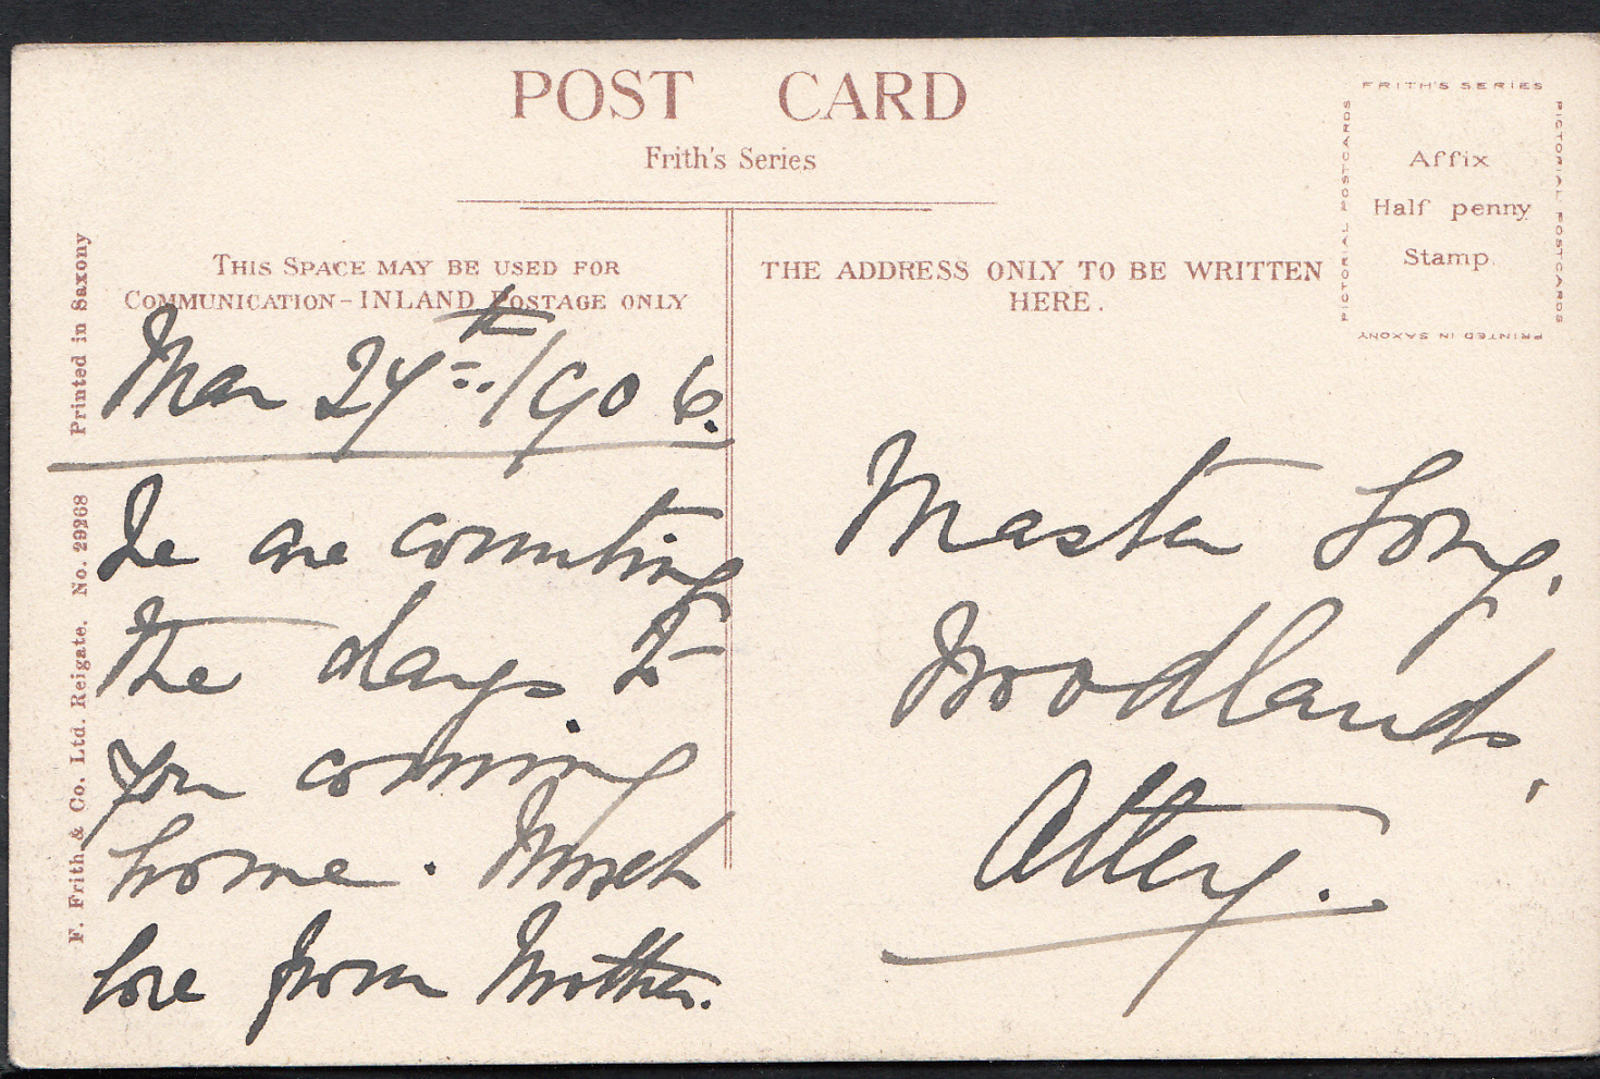 POST CARD
Frith's Series
FRITH'S SERIES
PICTORIAL POSTCARDS
PICTORIAL POSTCARDS
PRINTED IN SAXONY
Affix
Half penny
Stamp.
THIS SPACE MAY BE USED FOR
COMMUNICATION - INLAND POSTAGE ONLY
THE ADDRESS ONLY TO BE WRITTEN
HERE.
F. Frith & Co. Ltd. Reigate. No. 29268 Printed in Saxony
Mar 24th 1906.
We are counting
the days to
you coming
home. Much
love from Mother.
Master Long,
Woodlands,